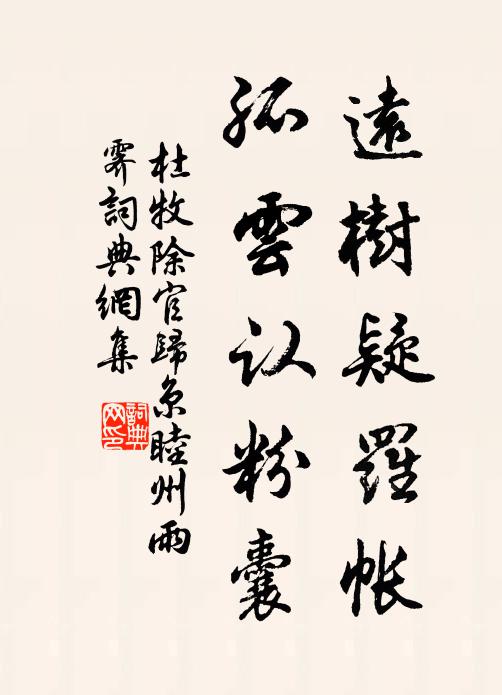 遠樹疑羅帳
孤雲认粉囊
杜牧除官歸京睦州雨
霁詞典網集
詞典
网印